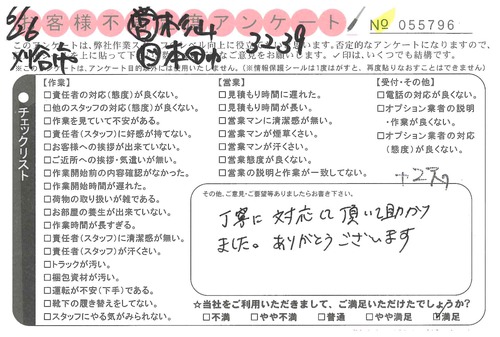 お客様不満アンケート
No 055796
6/26
刈谷市
営 木
3239
このアンケートは、弊社作業
否定的なアンケートになりますので、
お願いします。✓印は、いくつでも結構です。
※このアンケートは、アンケート目的以外には使用いたしません。（※情報保護シールは1度はがすと、再度貼りなおすことはできません）
チェックリスト
【作業】
□責任者の対応（態度）が良くない。
□他のスタッフの対応（態度）が良くない。
□作業を見ていて不安がある。
□責任者（スタッフ）に好感が持てない。
□お客様への挨拶が出来ていない。
□ご近所への挨拶・気遣いが無い。
□作業開始前の内容確認がなかった。
□作業開始時間が遅れた。
□荷物の取り扱いが雑である。
□お部屋の養生が出来ていない。
□作業時間が長すぎる。
□責任者（スタッフ）に清潔感が無い。
□責任者（スタッフ）が汗くさい。
□トラックが汚い。
□梱包資材が汚い。
□運転が不安（下手）である。
□靴下の履き替えをしてない。
□スタッフにやる気がみられない。
【営業】
□見積もり時間に遅れた。
□見積もり時間が長い。
□営業マンに清潔感が無い。
□営業マンが煙草くさい。
□営業マンが汗くさい。
□営業態度が良くない。
□営業の説明と作業が一致してない。
【受付・その他】
□電話の対応が良くない。
□オプション業者の説明
・作業が良くない。
□オプション業者の対応
（態度）が良くない。
その他、ご意見・ご要望等ありましたらお書き下さい。
丁寧に対応して頂いて助かり
ました。ありがとうございます
☆当社をご利用いただきまして、ご満足いただけたでしょうか?
□不満 □やや不満 □普通 □やや満足 ☑満足